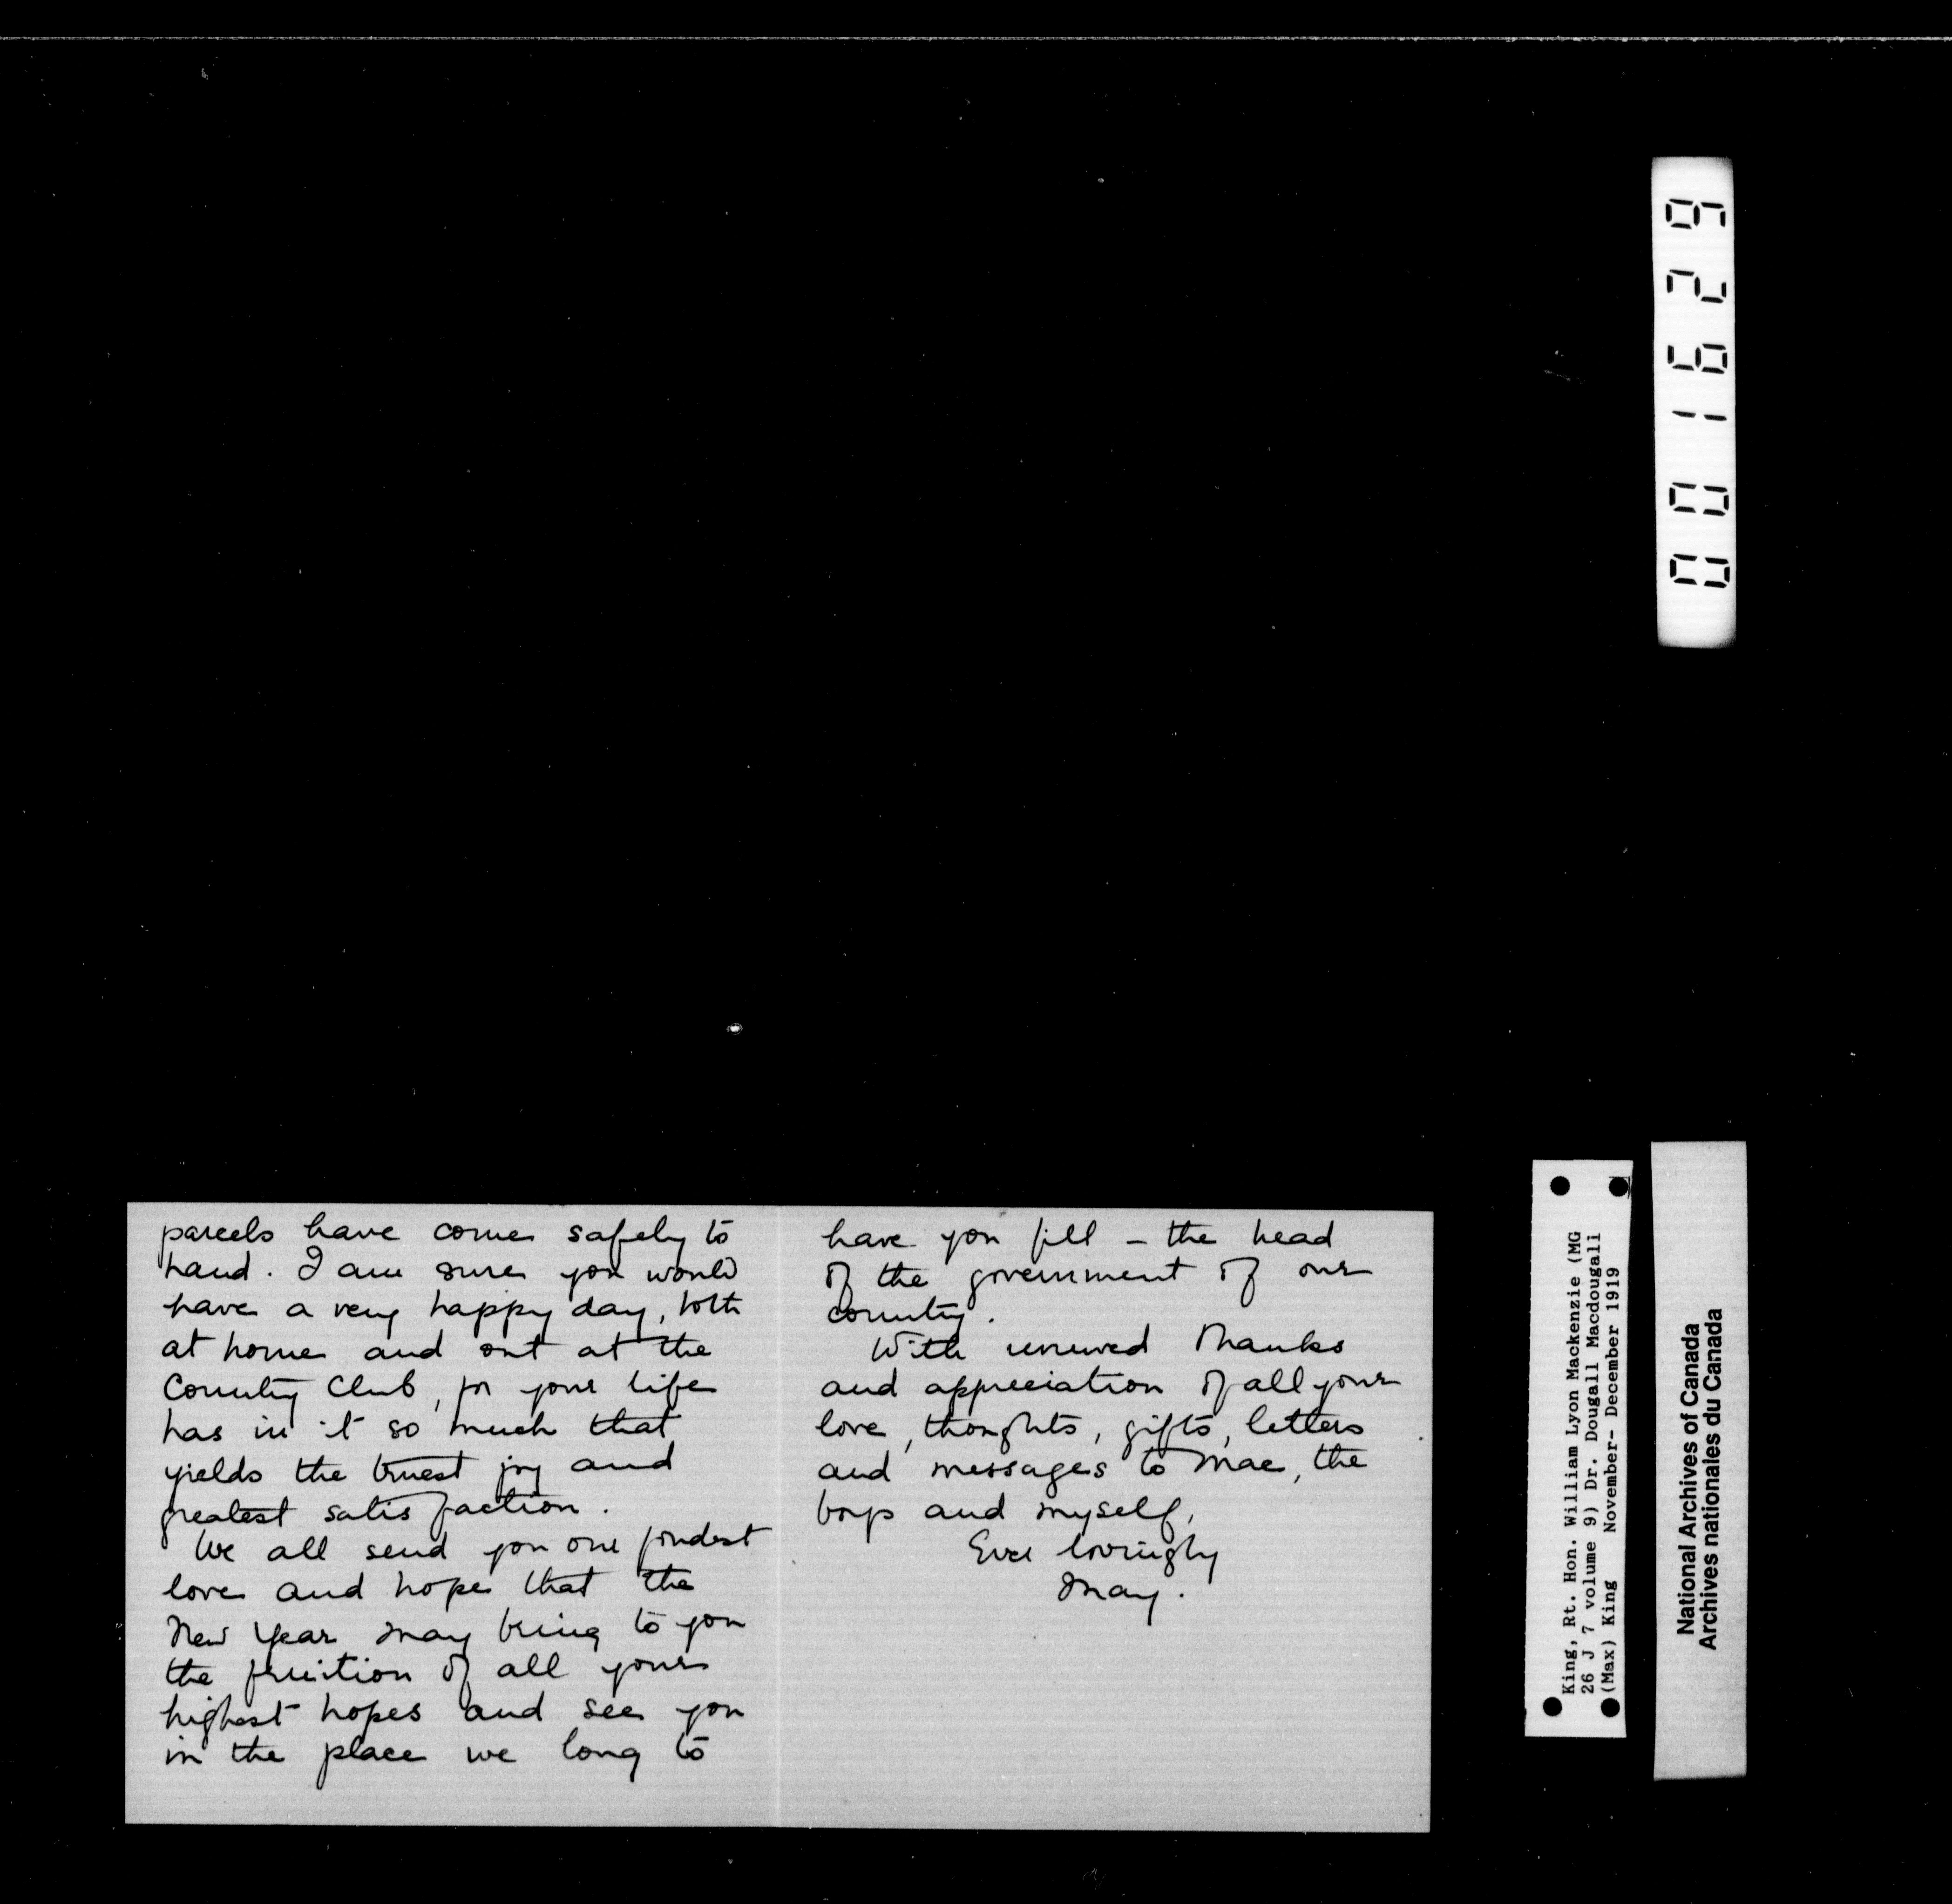 parcels have come safely to
hand. I am sure you would
have a very happy day, both
at home and out at the
Country Club, for your life
has in it so much that
yields the truest joy and
greatest satisfaction.
We all send you our fondest
love and hope that the
New Year may bring to you
the fruition of all your
highest hopes and see you
in the place we long to
have you fill – the head
of the government of our
country.
With renewed thanks
and appreciation of all your
love, thoughts, gifts, letters
and messages to Mae, the
boys and myself,
Ever lovingly
May.
001629
King, Rt. Hon. William Lyon Mackenzie (MG
26 J 7 volume 9) Dr. Dougall Macdougall
(Max) King November- December 1919
National Archives of Canada
Archives nationales du Canada